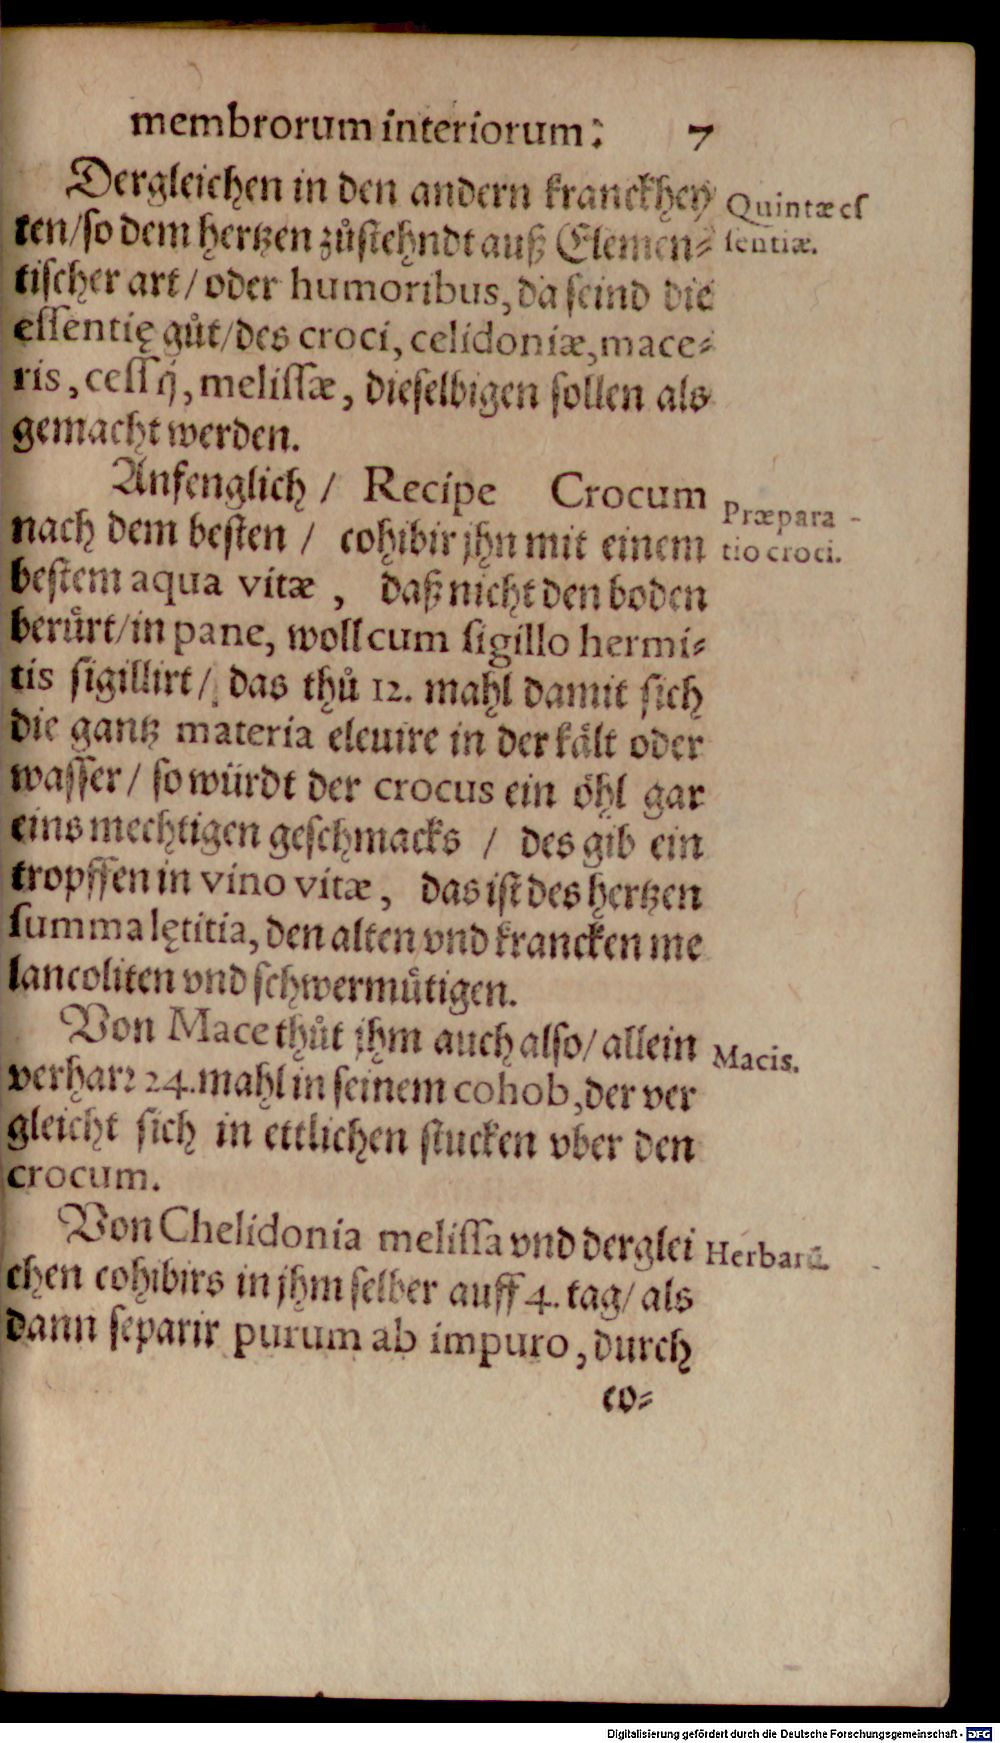 membrorum interiorum: 7
Dergleichen in den andern kranckhey
ten/so dem hertzen zůstehndt auß Elemen-
tischer art/ oder humoribus, da seind die
essentię gůt/des croci, celidoniæ, mace-
ris, cessij, melissæ, dieselbigen sollen als
gemacht werden.
Quintæ es
sentiæ.
Anfenglich / Recipe Crocum
nach dem besten / cohibir jhn mit einem
bestem aqua vitæ , daß nicht den boden
berůrt/in pane, woll cum sigillo hermi-
tis sigillirt/ das thů 12. mahl damit sich
die gantz materia eleuire in der kålt oder
wasser/ so würdt der crocus ein öhl gar
eins mechtigen geschmacks / des gib ein
tropffen in vino vitæ, das ist des hertzen
summa lętitia, den alten vnd krancken me
lancoliten vnd schwermůtigen.
Præpara-
tio croci.
Von Mace thůt jhm auch also/ allein
verharꝛ 24. mahl in seinem cohob, der ver
gleicht sich in ettlichen stucken vber den
crocum.
Macis.
Von Chelidonia melissa vnd derglei
chen cohibirs in jhm selber auff 4. tag/ als
dann separir purum ab impuro, durch
Herbarū.
co-
Digitalisierung gefördert durch die Deutsche Forschungsgemeinschaft - DFG